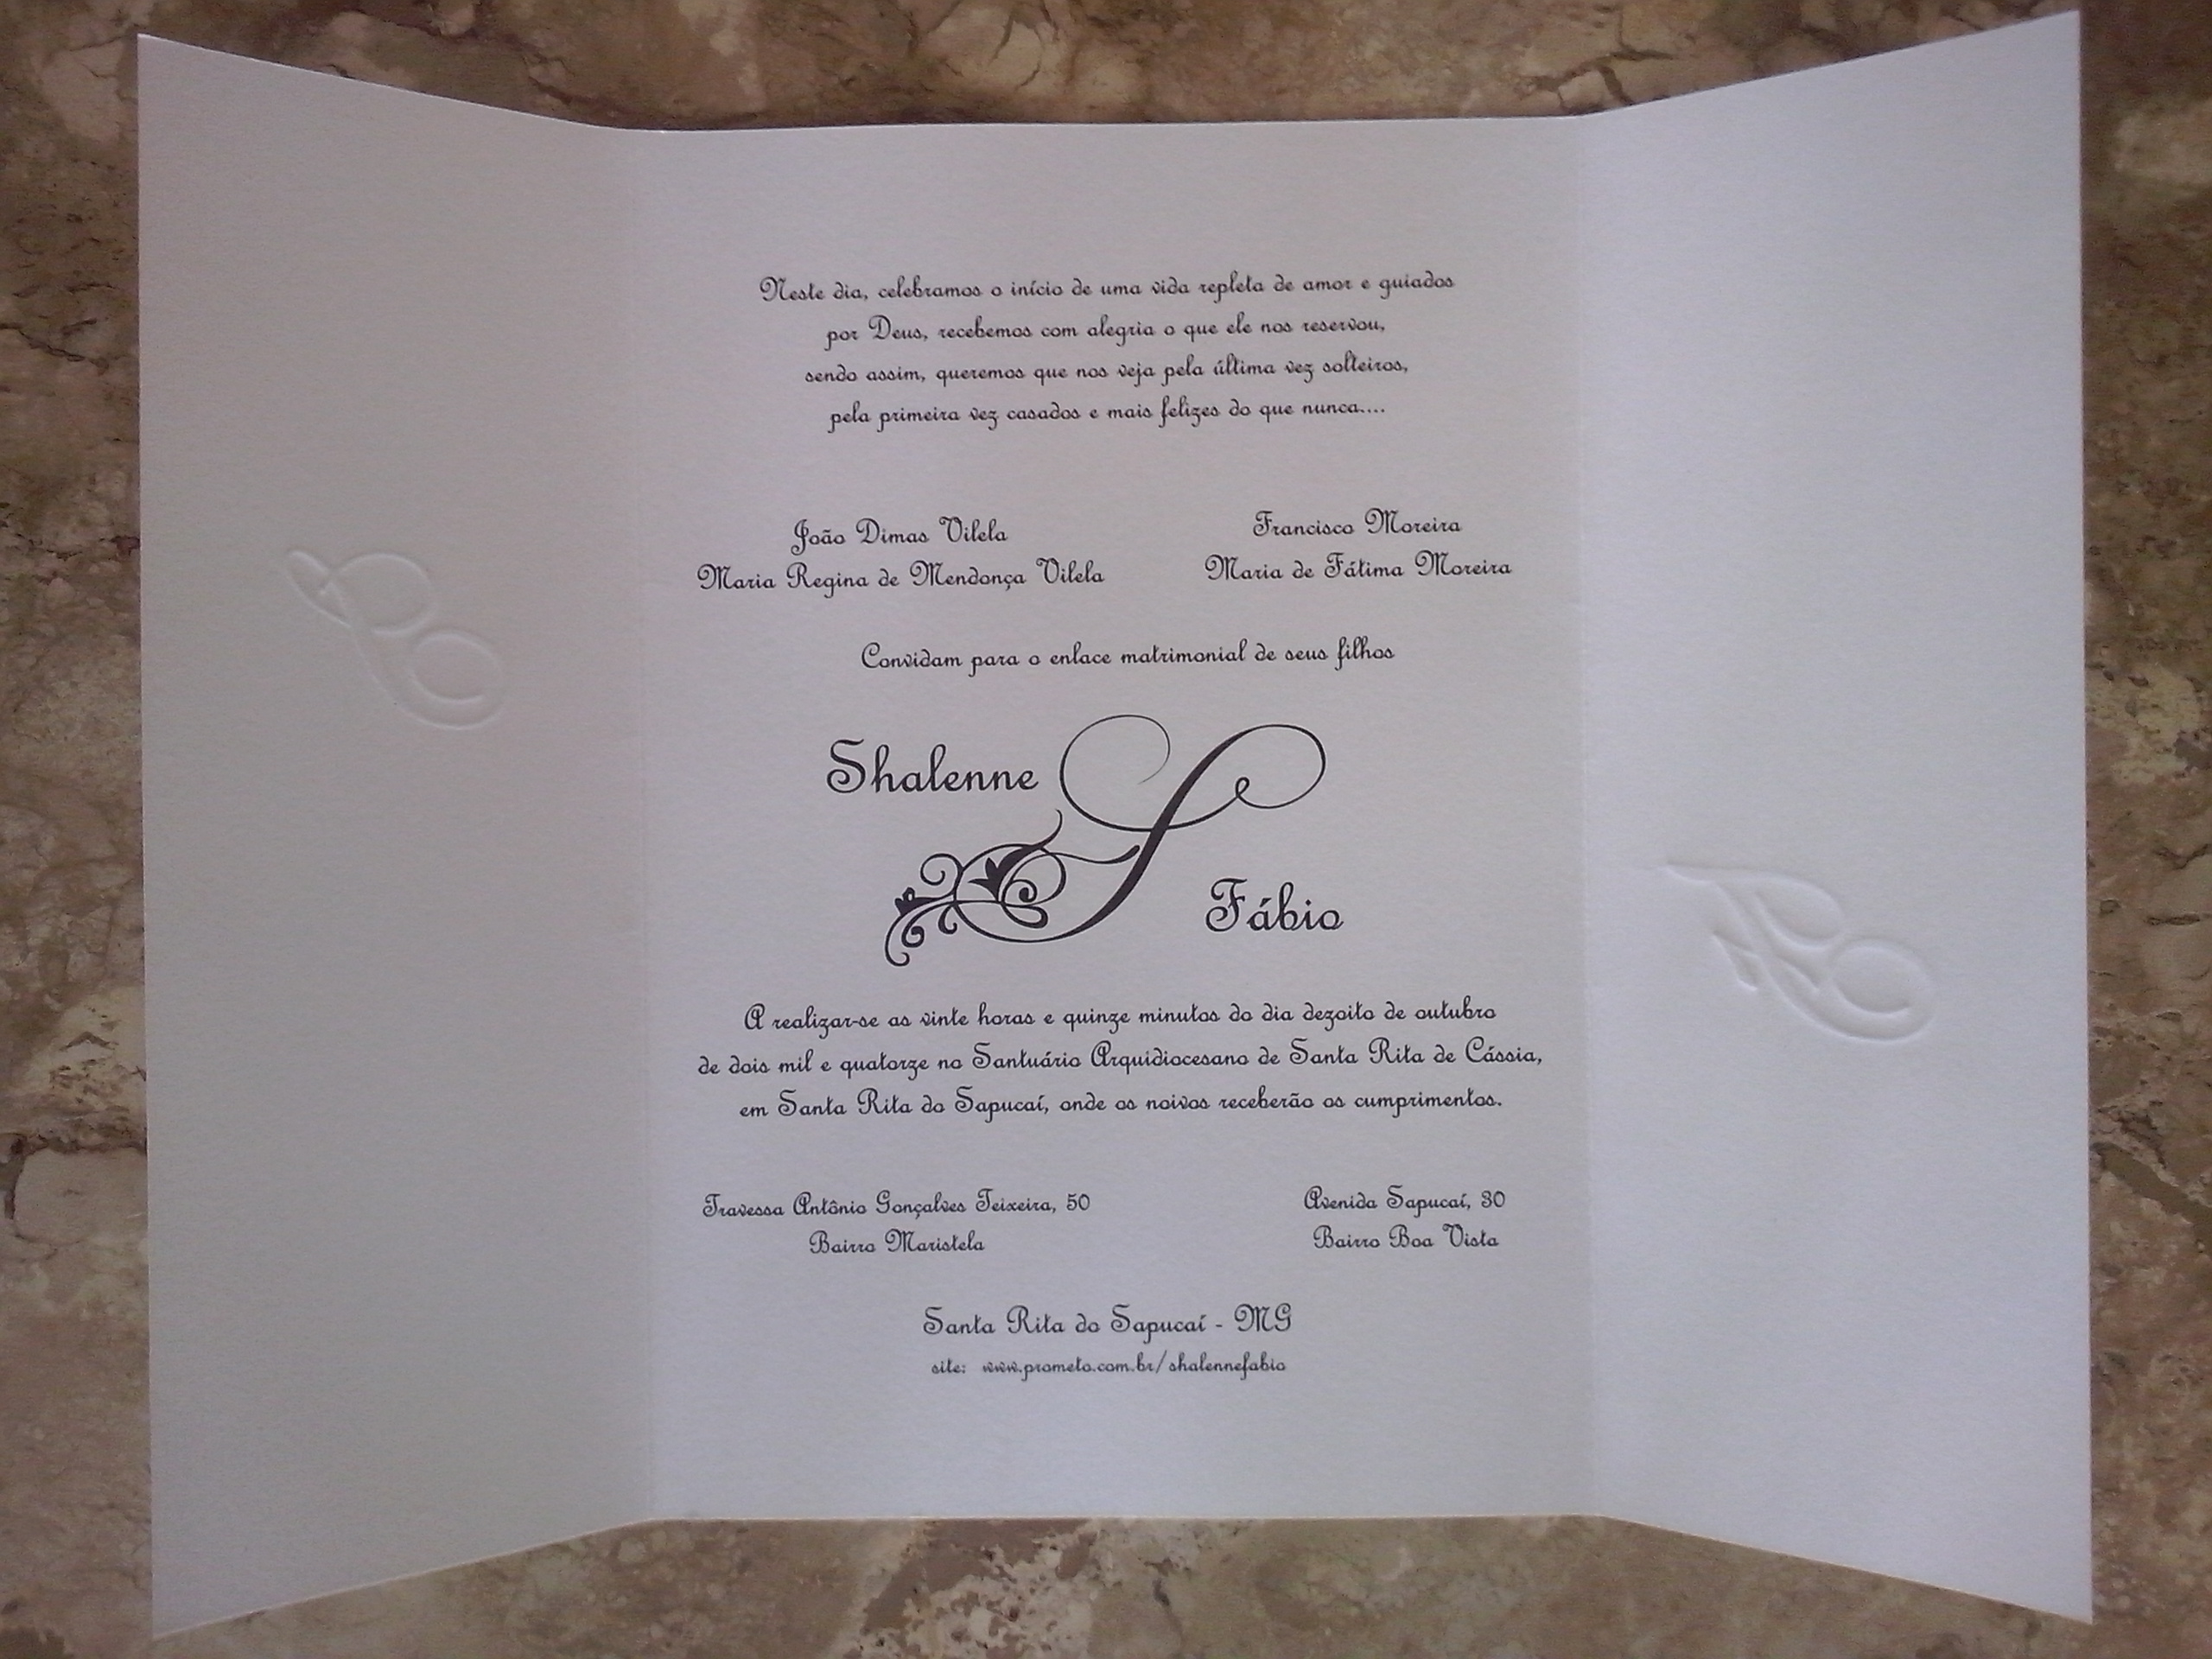 Neste dia, celebramos o início de uma vida repleta de amor e guiados
por Deus, recebemos com alegria o que ele nos reservou,
sendo assim, queremos que nos veja pela última vez solteiros,
pela primeira vez casados e mais felizes do que nunca....
João Dimas Vilela
Maria Regina de Mendonça Vilela
Francisco Moreira
Maria de Fátima Moreira
Convidam para o enlace matrimonial de seus filhos
Shalenne
S
Fábio
A realizar-se as vinte horas e quinze minutos do dia dezoito de outubro
de dois mil e quatorze no Santuário Arquidiocesano de Santa Rita de Cássia,
em Santa Rita do Sapucaí, onde os noivos receberão os cumprimentos.
Travessa Antônio Gonçalves Teixeira, 50
Bairro Maristela
Avenida Sapucaí, 30
Bairro Boa Vista
Santa Rita do Sapucaí - MG
site: www.prometo.com.br/shalennefabio